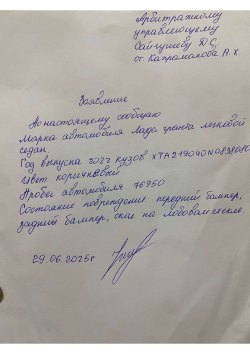 Арбитражному
управляющему
Сайгушеву Д.С.
от Капраманова А.Х.
Заявление
По настоящему сообщаю
Марка автомобиля Лада гранта легковой
седан.
Год выпуска 2022 кузов
Цвет коричневый
Пробег автомобиля 76950
Состояние повреждение передний бампер,
задний бампер, скол на лобовом стекле.
29.06.2025г